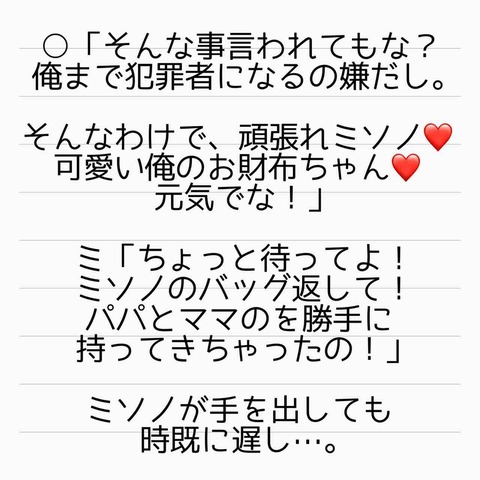 ○「そんな事言われてもな？
俺まで犯罪者になるの嫌だし。
そんなわけで、頑張れミソノ❤️
可愛い俺のお財布ちゃん❤️
元気でな！」
ミ「ちょっと待ってよ！
ミソノのバッグ返して！
パパとママのを勝手に
持ってきちゃったの！」
ミソノが手を出しても
時既に遅し…。